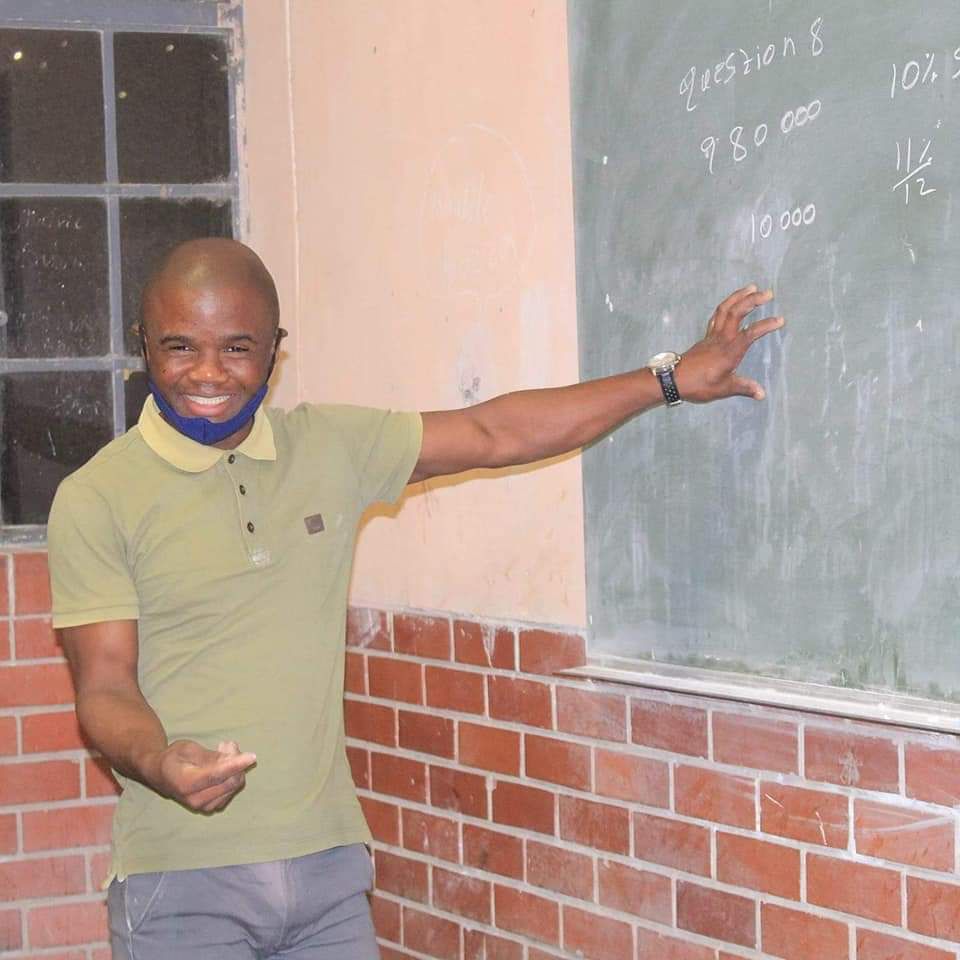 Question 8
980 000
10 000
10%
11%
12